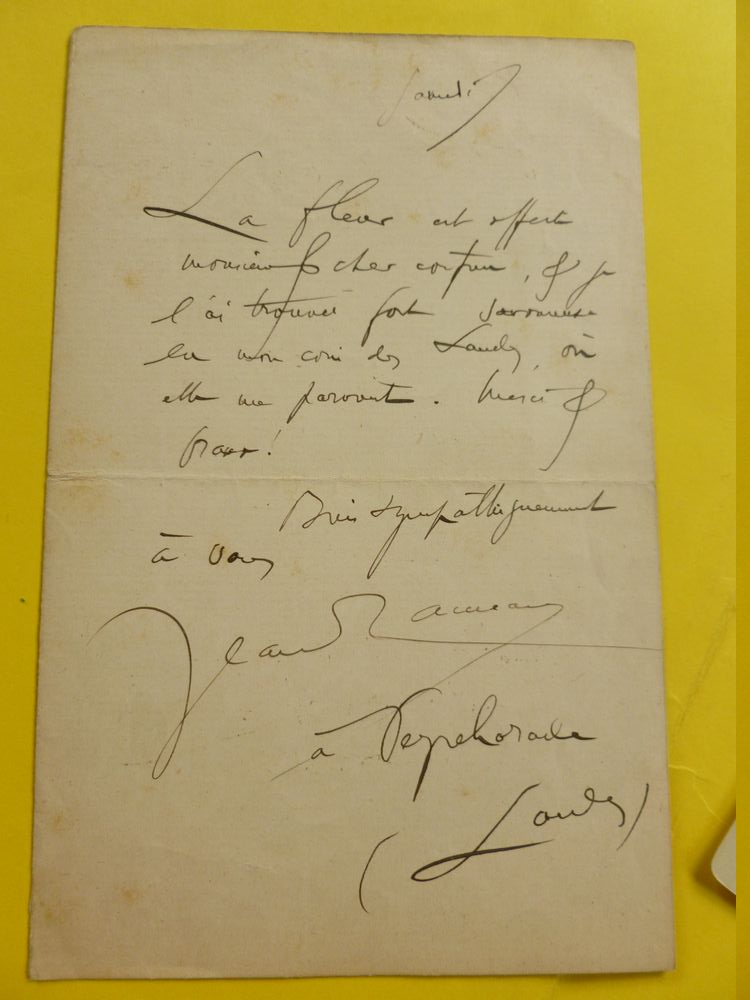 Samedi
La fleur est offerte
monsieur & cher confrère, & je
l'ai trouvée fort savoureuse
en mon coin des Landes, où
elle me parvint. Merci &
bravo!
Bien sympathiquement
à vous
Jean Rameau
à Peyrehorade
(Landes)